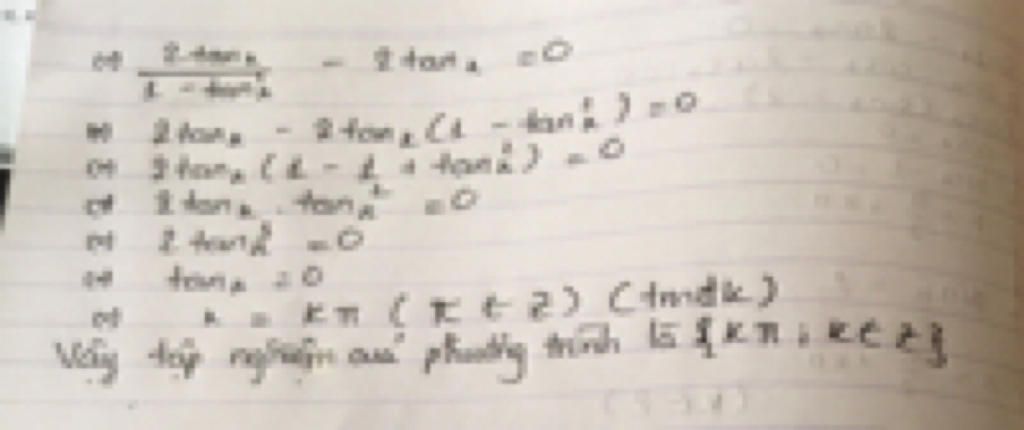 ⇔ 2 tan x / (1 - tan²x) - 2 tan x = 0
⇔ 2 tan x - 2 tan x (1 - tan²x) = 0
⇔ 2 tan x (1 - 1 + tan²x) = 0
⇔ 2 tan x . tan²x = 0
⇔ 2 tan³x = 0
⇔ tan x = 0
⇔ x = kπ (k ∈ Z) (tmđk)
Vậy tập nghiệm của phương trình là {kπ ; k ∈ Z}